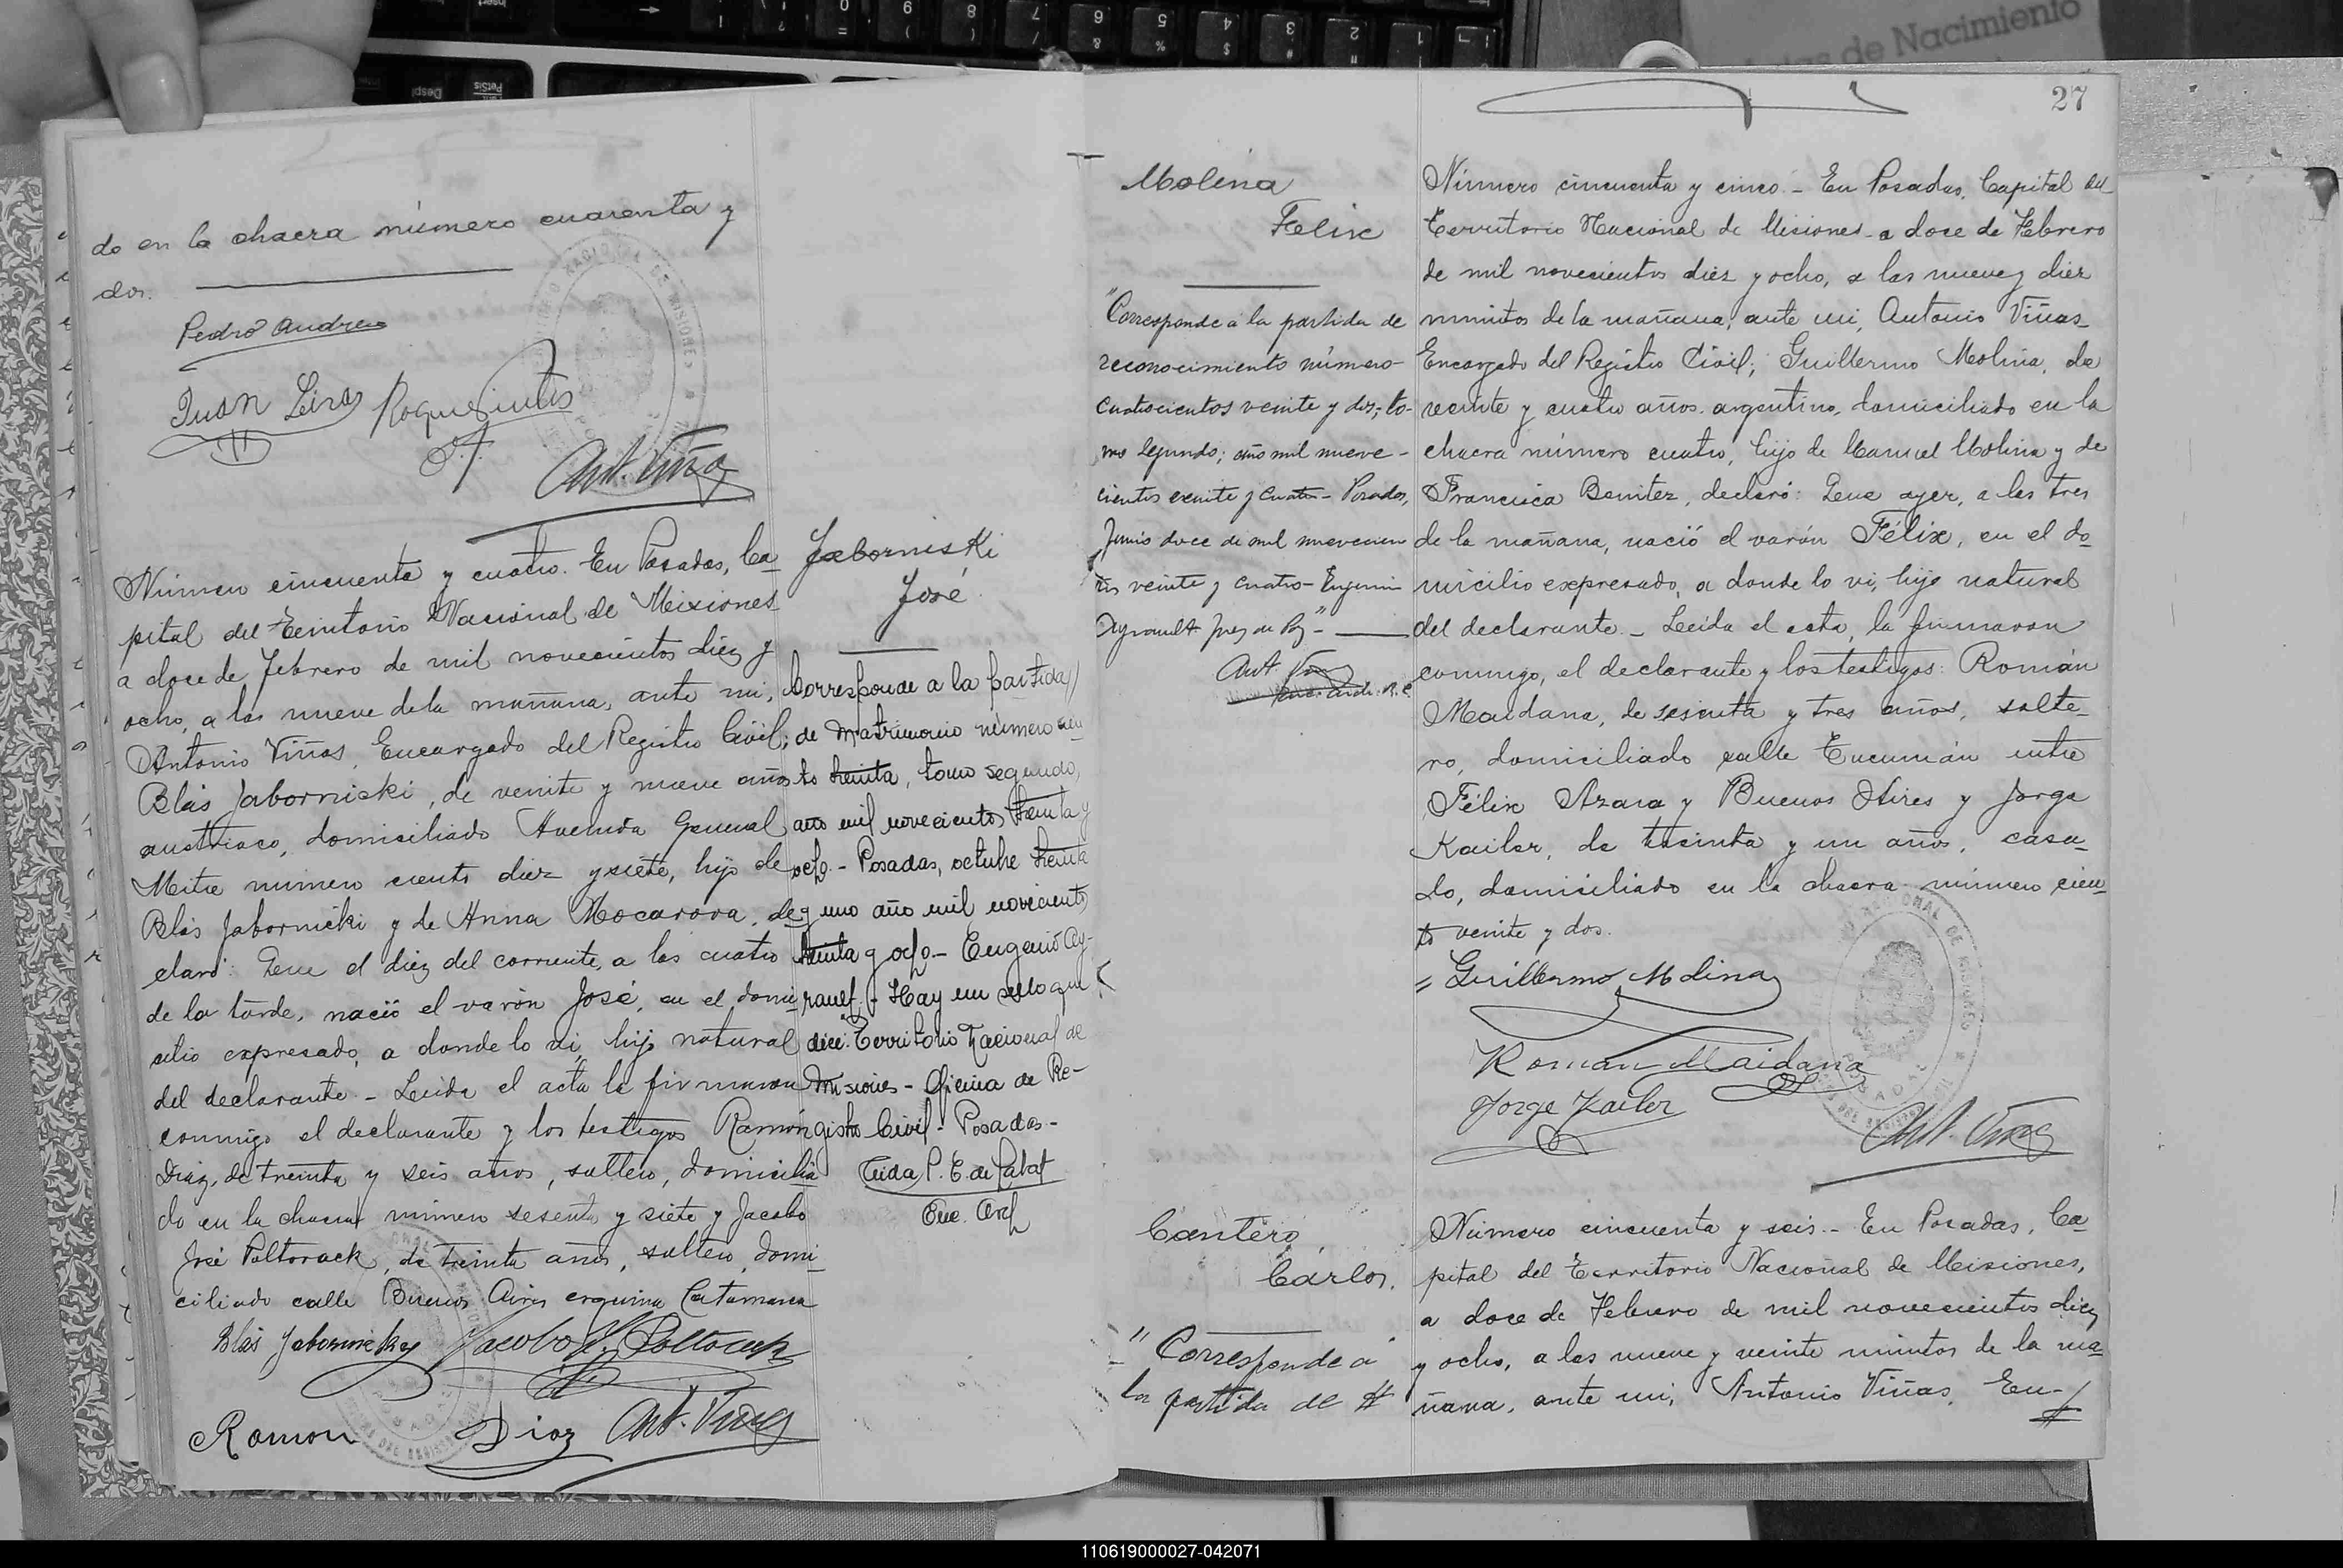 de Nacimiento
do en la chacra número cuarenta y
dos.
Pedro Andreu
Juan Leiva Roque
Ant. Viñas
Jaborniski
José
Número cincuenta y cuatro. En Posadas, Ca-
pital del Territorio Nacional de Misiones
a doce de Febrero de mil novecientos diez y
ocho, a las nueve de la mañana, ante mi,
Antonio Viñas, Encargado del Registro Civil;
Blás Jabornicki, de veinte y nueve años
austriaco, domiciliado Avenida General
Mitre número ciento diez y siete, hijo de
Blás Jabornicki y de Anna Mocarova, de-
claró: Que el diez del corriente, a las cuatro
de la tarde, nació el varón José, en el domi-
cilio expresado, a donde lo vi, hijo natural
del declarante. - Leida el acta la firmaron
conmigo el declarante y los testigos Ramón
Diaz, de treinta y seis años, soltero, domicilia
do en la chacra número sesenta y siete y Jacobo
José Poltorack, de treinta años, soltero, domi-
ciliado calle Buenos Aires esquina Catamarca
Blás Jabornicky Jacobo J. Poltorack
Ramon Diaz Ant. Viñas
Corresponde a la partida
de matrimonio número cien
to treinta, tomo segundo,
año mil novecientos treinta y
ocho. - Posadas, octubre treinta
y uno año mil novecientos
treinta y ocho. - Eugenio Ay-
rault. - Hay un sello que
dice: Territorio Nacional de
Misiones - Oficina de Re-
gistro Civil - Posadas -
Enc. Arch
27
Molina
Felix
"Corresponde a la partida de
reconocimiento número
cuatrocientos veinte y dos; to-
mo segundo; año mil nueve-
cientos veinte y cuatro - Posadas,
Junio doce de mil novecien
tos veinte y cuatro - Eugenio
Ayrault Juez de Paz" -
Ant. Viñas
Número cincuenta y cinco. - En Posadas, Capital del
Territorio Nacional de Misiones a doce de Febrero
de mil novecientos diez y ocho, a las nueve y diez
minutos de la mañana, ante mi, Antonio Viñas
Encargado del Registro Civil; Guillermo Molina, de
veinte y cuatro años, argentino, domiciliado en la
chacra número cuatro, hijo de Manuel Molina y de
Francisca Benitez, declaró: Que ayer, a las tres
de la mañana, nació el varón Félix, en el do
micilio expresado, a donde lo vi, hijo natural
del declarante. - Leida el acta, la firmaron
conmigo, el declarante y los testigos: Román
Maidana, de sesenta y tres años, solte-
ro, domiciliado calle Tucumán entre
Félix Azara y Buenos Aires y Jorge
Kailer, de treinta y un años, casa-
do, domiciliado en la chacra número cien-
to veinte y dos.
Guillermo Molina
Roman Maidana
Jorge Kailer
Ant. Viñas
Cantero,
Cárlos.
"Corresponde a
la partida de
Número cincuenta y seis. - En Posadas, Ca
pital del Territorio Nacional de Misiones,
a doce de Febrero de mil novecientos diez
y ocho, a las nueve y veinte minutos de la ma
ñana, ante mi, Antonio Viñas, En-
110619000027-042071